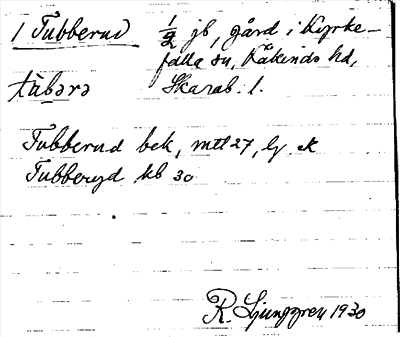 1 Tubberud ½ jb, gård i Kyrke-
falla sn, Kåkinds hd,
tùbərə Skarab. l.
Tubberud bek, mtl 27, Gk
Tubberyd kb 30
R. Ljunggren 1930